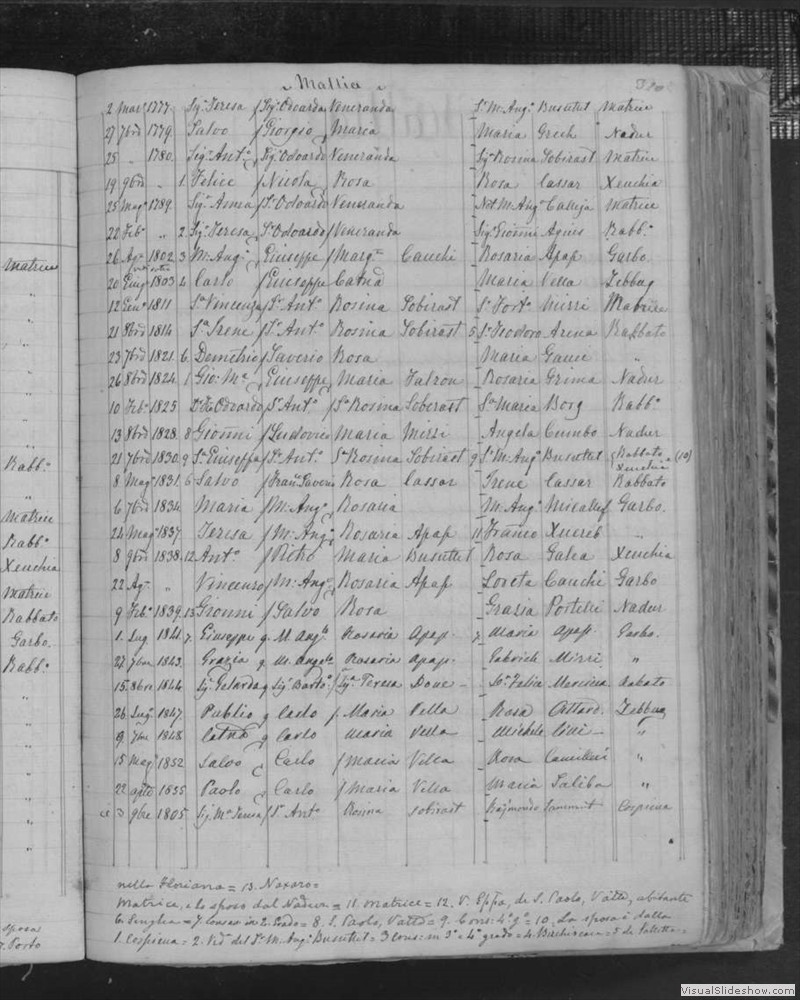 Mallia
2 Mar: 1777. Sig.ª Teresa f Sig. Odoardo Veneranda Sr M. Ang.º Busuttil Matrice
27 7bre 1779. Salvo f Giorgio Maria Maria Grech Nadur
25 " 1780. Sig. Ant.º f Sig. Odoardo Veneranda Sig.ª Rosina Sobirast Matrice
19 9bre " 1. Felice f Nicola Rosa Rosa Cassar Xeuchia
25 Mag.º 1789. f Sr Odoardo Veneranda Not. M. Ang.º Calleja Matrice
22 Feb.º " 2 Sig.ª Teresa f Sr Odoardo Veneranda Sig. Gionni Agius Rabb.º
26 Ag.º 1802 3 M. Ang.º f Giuseppe Marg.ta Cauchi Rosaria Apap Garbo.
20 Giug.º 1803 4 Carlo f Giuseppe Catnã Maria Vella Zebbug
12 1811 Sra Vincenza f Sr Ant.º Rosina Sobirast Sr Fort.º Mizzi Matrice
21 8bre 1814. Sra Irene f Sr Ant.º Rosina Sobirast 5 Sr Teodoro Arena Rabbato
23 7bre 1821. 6 Demetrio f Saverio Rosa Maria Gauci "
26 8bre 1824. 1 Gio: Mª f Giuseppe Maria Falzon Rosaria Grima Nadur
10 Feb.º 1825. Odoardo f Sr Ant.º Sra Rosina Sobirast Sra Maria Borg Rabb.º
13 8bre 1828. 8 Gionni f Ludovico Maria Mizzi Angela Cumbo Nadur
21 7bre 1830. 9 Sra Giuseppa f Sr Ant.º Sra Rosina Sobirast 9 Sr M. Ang.º Busuttil Rabbato Xeuchia (10)
8 Mag.º 1831. 6 Salvo f Saverio Rosa Cassar Irene Cassar Rabbato
6 7bre 1834. Maria f M. Ang.º Rosaria M. Ang.º Micallef Garbo.
24 Mag.º 1837. Teresa f M. Ang.º Rosaria Apap 11 Franco Xuereb "
8 9bre 1838. 12 Ant.º f Pietro Maria Busuttil Rosa Galea Xeuchia
22 Ag.º " Vincenzo f M. Ang.º Rosaria Apap Loreta Cauchi Garbo
9 Feb.º 1839. 13 Gionni f Salvo Rosa Grazia Portelli Nadur
1. Lug. 1841. 7. Giuseppe q. M. Ang.º Rosaria Apap. 7 Maria Apap. Garbo.
27 1843. Grazia q M. Angelo Rosaria Apap. Gabriele Mizzi. "
15. 8bre 1844. q Sig. Barto.º f Sig.ª Teresa Felice Messina. Rabato
26 Lug.º 1847. Publio q Carlo f. Maria Vella Rosa Attard. Zebbug
9 1848. Catnã q Carlo Maria Vella Michele "
15 Mag.º 1852 Salvo q Carlo f Maria Vella Rosa Camilleri "
22 agto 1855 Paolo q Carlo f Maria Vella Maria Saliba "
9bre 1805. Sig.ª Mª Teresa f Sr Ant.º Rosina Sobirast Raimondo Cospicua
Matrice
"
"
"
Rabb.º
"
Matrice
Rabb.º
Xeuchia
Matrice
Rabbato
Garbo.
Rabb.º
"
"
"
"
"
"
sposa
Porto
nella Floriana = 13. Naxaro =
Matrice, e lo sposo dal Nadur = 11. Matrice = 12. di S. Paolo, Vallta, abitante
6. Senglea = 7. Cons: in 2. Grado = 8. S. Paolo, Vallta = 9. Cons: 4º gº = 10. La sposa è dalla
1. Cospicua = 2. Vedª del Sr M. Ang.º Busuttil = 3 Cons: in 3º e 4º grado = 4. Birchircara = 5 da Valletta =
VisualSlideshow.com